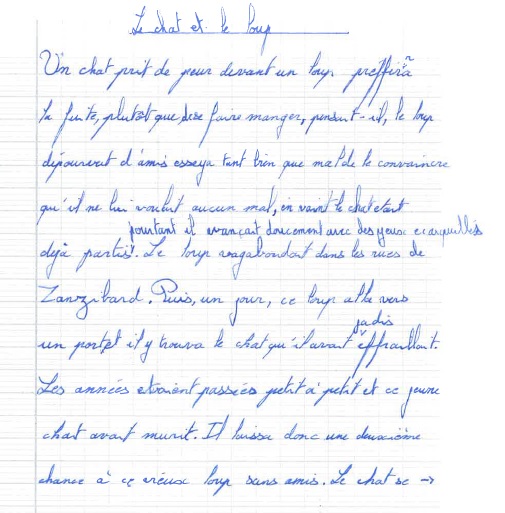 Le chat et le loup
Un chat prit de peur devant un loup preffera
la fuite, plutot que de se faire manger, pensait-il, le loup
dépourvut d'amis essaya tant bien que mal de le convaincre
qu'il ne lui voulait aucun mal, en vain le chat etait
pourtant il avançait doucement avec des yeux ecarquillés
déjà partis. Le loup vagabondait dans les rues de
Zanzibard. Puis, un jour, ce loup alla vers
jadis
un port et il y trouva le chat qu'il avait effraillait.
Les années etaient passées petit à petit et ce jeune
chat avait murit. Il laissa donc une deuxième
chance à ce vieux loup sans amis. Le chat se →